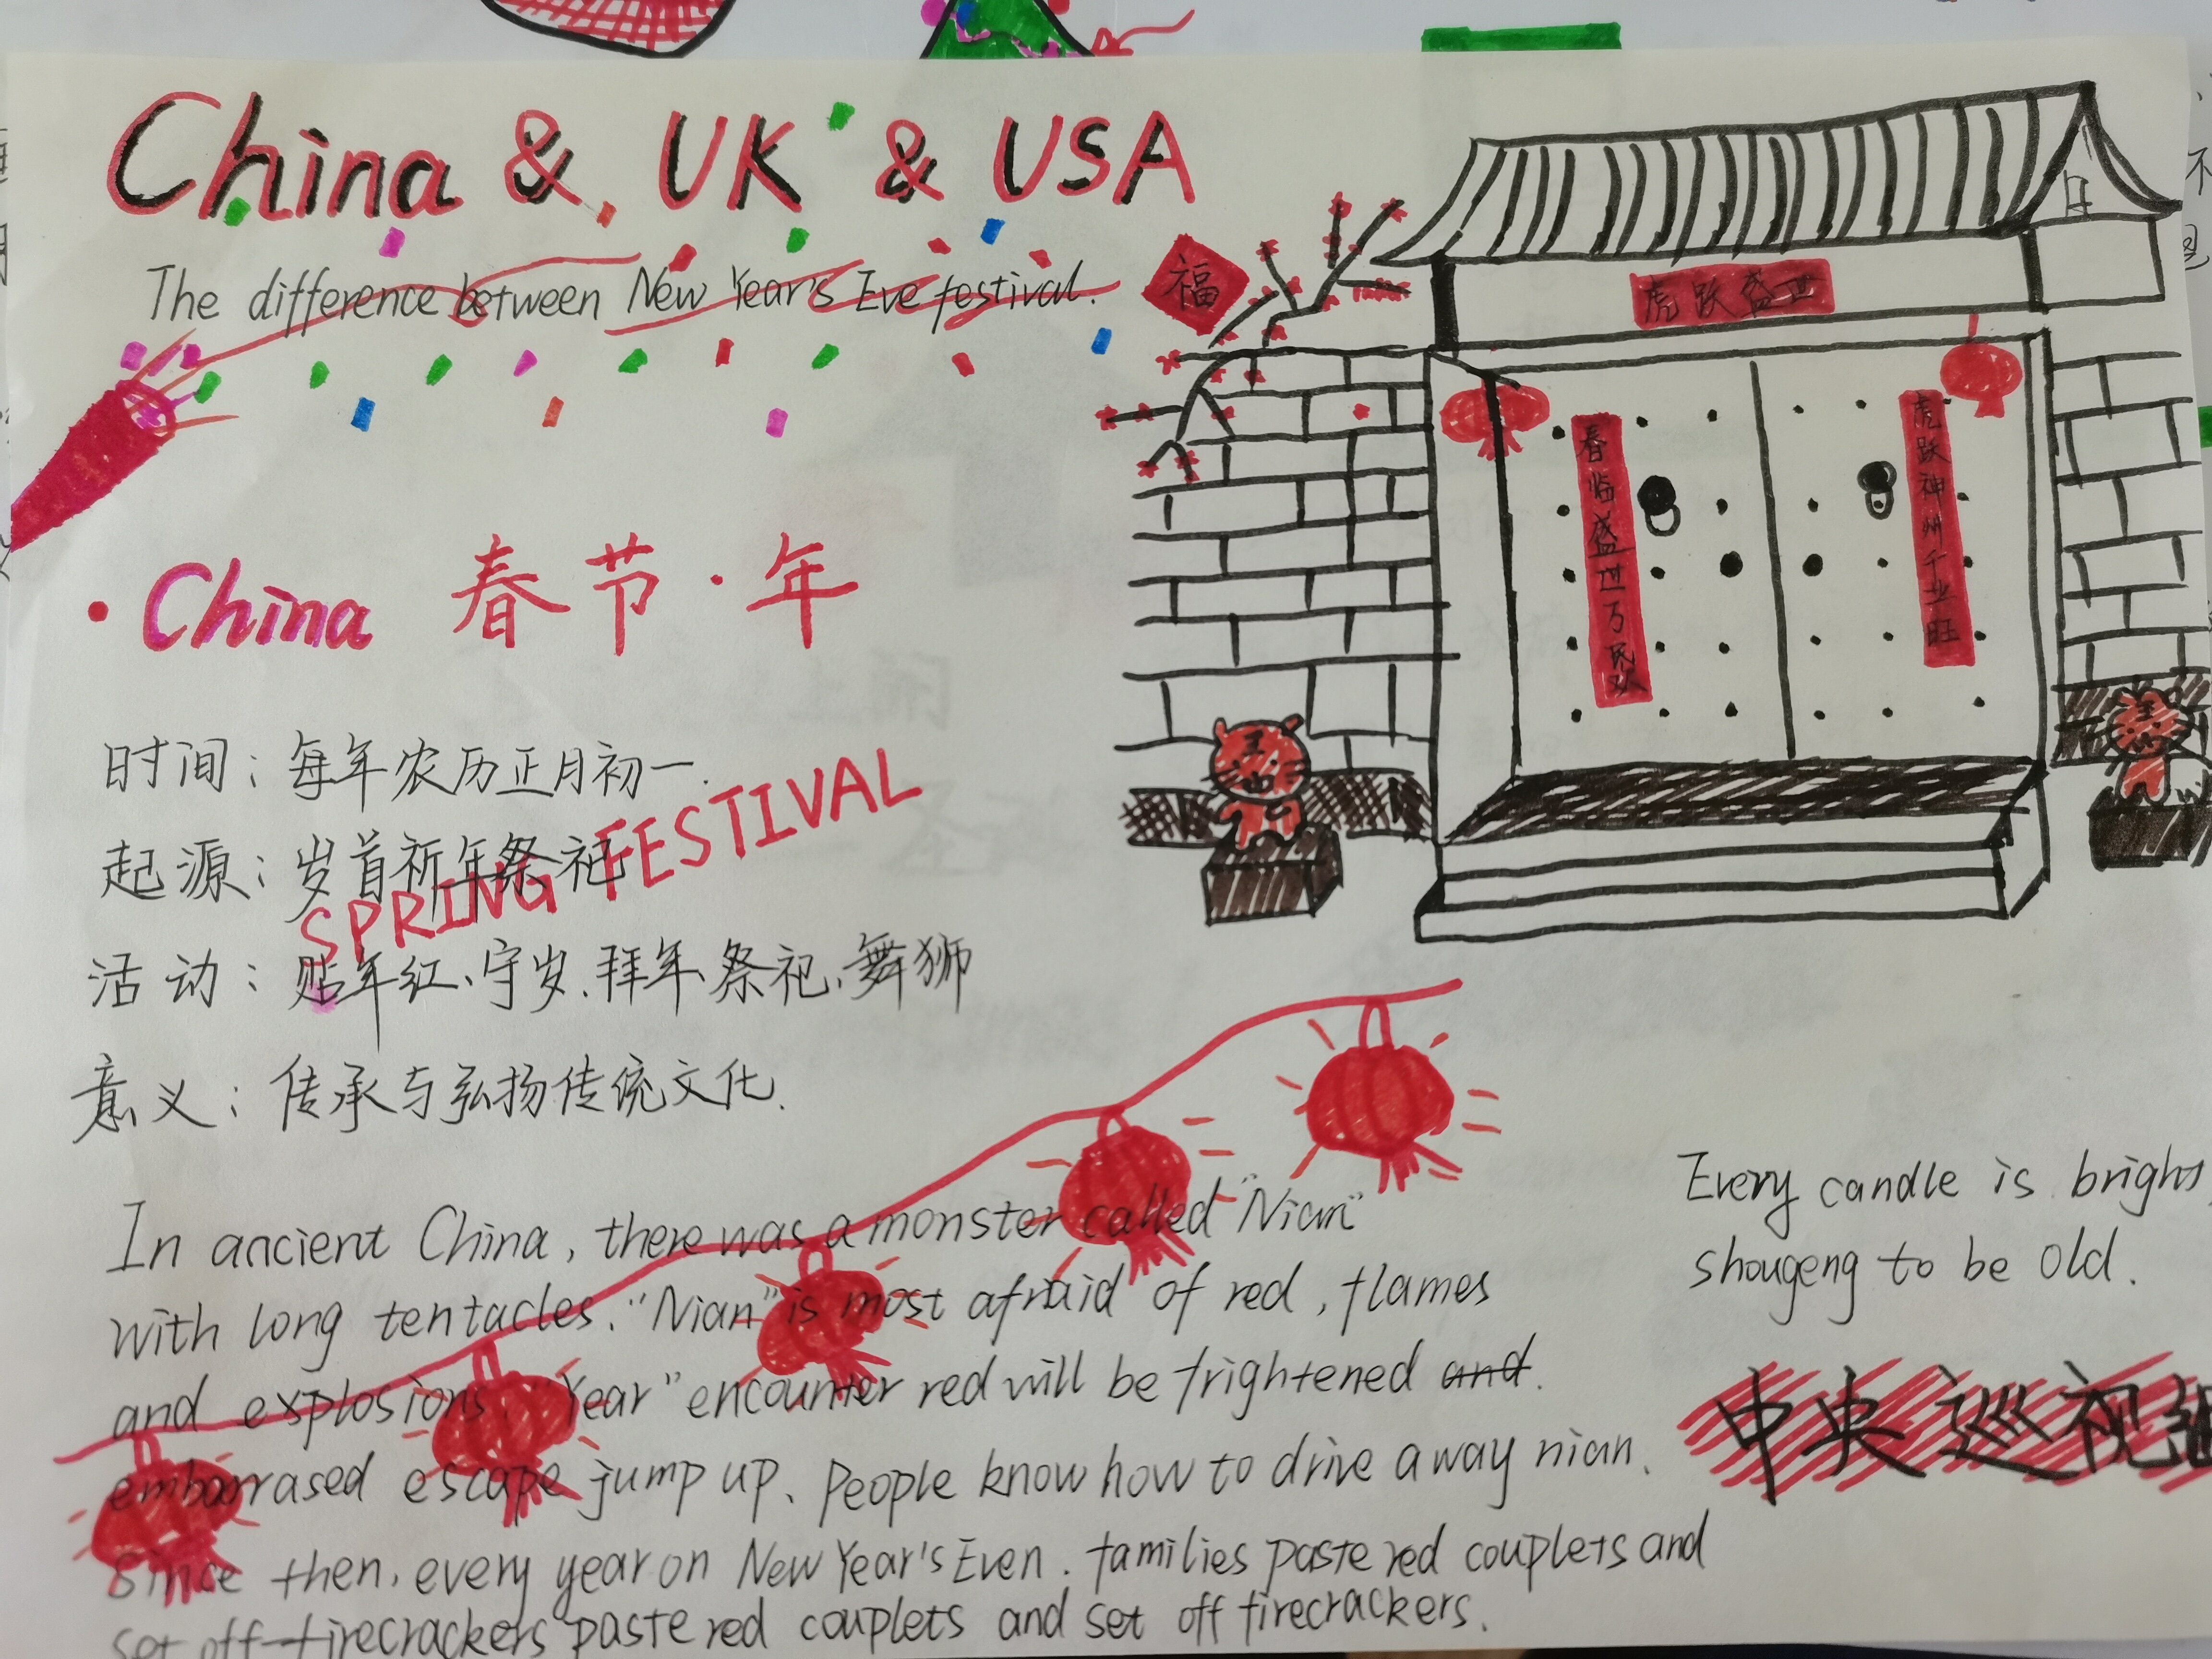 China & UK & USA
The difference between New Year's Eve festival.
福
虎跃盛世
春临盛世万民欢
虎跃神州千业旺
• China 春节·年
时间：每年农历正月初一.
起源：岁首祈年祭祀
SPRING FESTIVAL
活动：贴年红、守岁、拜年、祭祀、舞狮
意义：传承与弘扬传统文化.
In ancient China, there was a monster called "Nian"
with long tentacles. "Nian" is most afraid of red, flames
and explosions. "Year" encounter red will be frightened and.
embarrased escape jump up. People know how to drive away nian.
Since then, every year on New Year's Even. families paste red couplets and
set off firecrackers paste red couplets and set off firecrackers.
Every candle is bright
shougeng to be old.
中央巡视
王